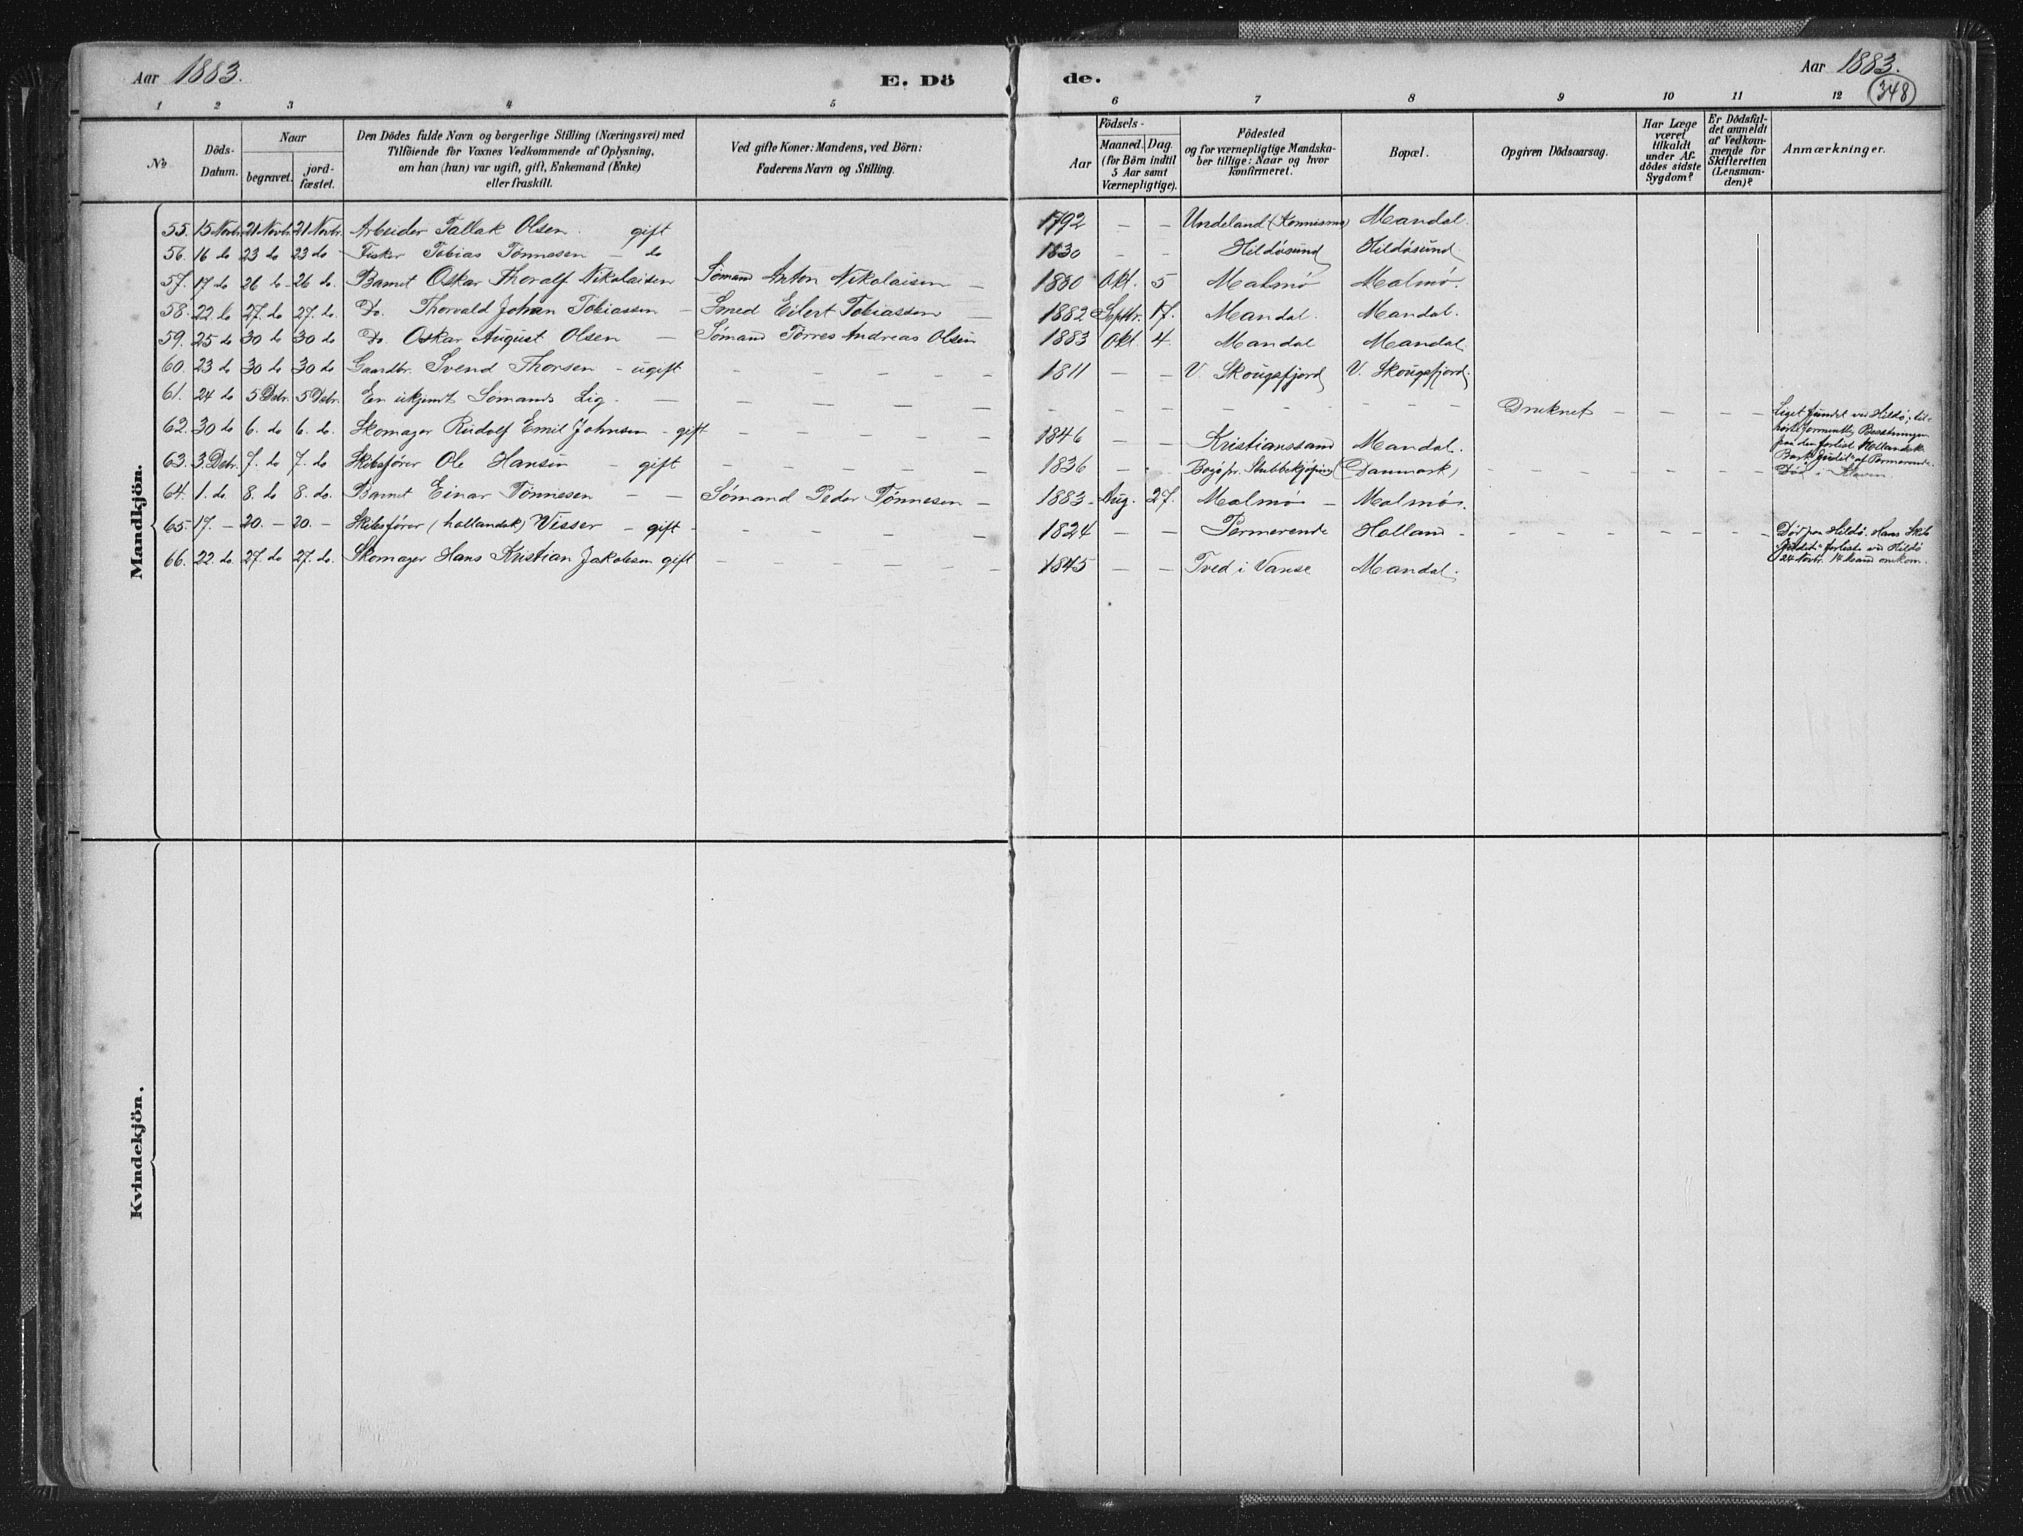 Aar 1883. E. Dö de. Aar 1883.
348
1 2 3 4 5 6 7 8 9 10 11 12
No
Döds-Datum.
Naar
begravet.
jord-fæstet.
Den Dödes fulde Navn og borgerlige Stilling (Næringsvei) med
Tilföiende for Voxnes Vedkommende af Oplysning,
om han (hun) var ugift, gift, Enkemand (Enke)
eller fraskilt.
Ved gifte Koner: Mandens, ved Börn:
Faderens Navn og Stilling.
Födsels-
Aar
Maaned. Dag.
(for Börn indtil
5 Aar samt
Værnepligtige).
Födested
og for værnepligtige Mandska-
ber tillige: Naar og hvor
konfirmeret.
Bopæl.
Opgiven Dödsaarsag.
Har Læge
været
tilkaldt
under Af-
dödes sidste
Sygdom?
Er Dödsfal-
det anmeldt
af Vedkom-
mende for
Skifteretten
(Lensman-
den)?
Anmærkninger.
Mandkjön.
55. 15 Novbr. 21 Novbr. 21 Novbr. Arbeider Tallak Olsen. gift 1792 — — Undeland Mandal.
56. 16 do 23 do 23 do Fisker Tobias Tønnesen — do 1830 - - Hildøsund Hildøsund.
57. 17 do 26 do 26 do. Barnet Oskar Thoralf Nikolaisen Sømand Anton Nikolaisen — 1880 Okt. 5 Malmø Malmø.
58. 22. do 27. do 27. do. Do. Thorvald Johan Tobiassen — Smed Eilert Tobiassen — 1882 Septbr. 17. Mandal. Mandal.
59. 25 do 30 do 30 do Do. Oskar August Olsen — Sømand Tørres Andreas Olsen 1883 Okt. 4. Mandal Mandal.
60. 23 do 30 do 30 do Gaardbr. Svend Thorsen - ugift 1811 — — V. Skougsfjord V. Skougsfjord.
61. 24 do 5 Debr. 5 Debr. En ukjendt Sømands Lig. — Druknet — — — Liget fundet ved Hildø; til-
hørte formentl. Besætningen
paa den forliste Hollandsk
Bark "Judit" af Permerende.
62. 30 do 6. do 6. do. Skomager Rudolf Emil Johnsen - gift 1846 — — Kristianssand Mandal.
63. 3 Debr. 7. do 7. do Skibsfører Ole Hansen — gift 1836 — - Bogø pr. Stubbekjøping (Danmark) Død i Kleven.
64. 1. do. 8. do 8. do. Barnet Einar Tønnesen — — Sømand Peder Tønnesen — 1883 Aug. 27. Malmø — Malmø.
65. 17. — 20. — 20. — Skibsfører (hollandsk) Visser — gift - 1824 — — Permerende Holland - Død paa Hildø. Hans Skib
"Judit" forliste ved Hildø
24 Novbr. 14 Mand omkom.
66. 22. do 27. do 27. do. Skomager Hans Kristian Jakobsen gift 1845 — — Tved i Vanse Mandal.
Kvindekjön.